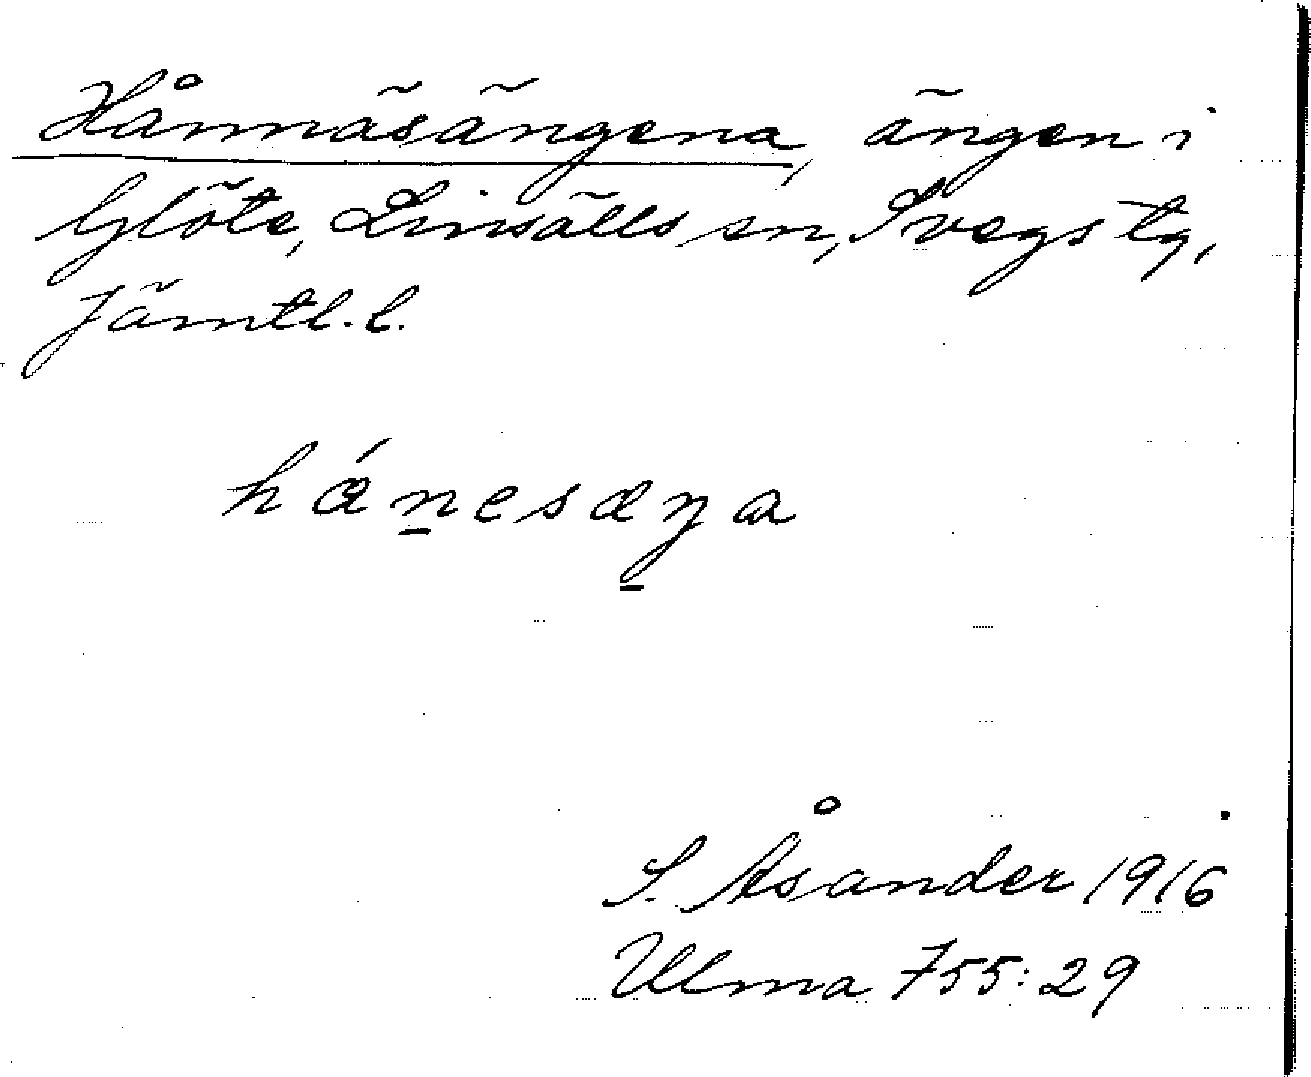 Hånnäsängena, ängen i
Glöte, Linsälls sn, Svegs tg,
Jämtl. l.
hǽn̲esæŋ̲a
S. Åsander 1916
Ulma 755:29